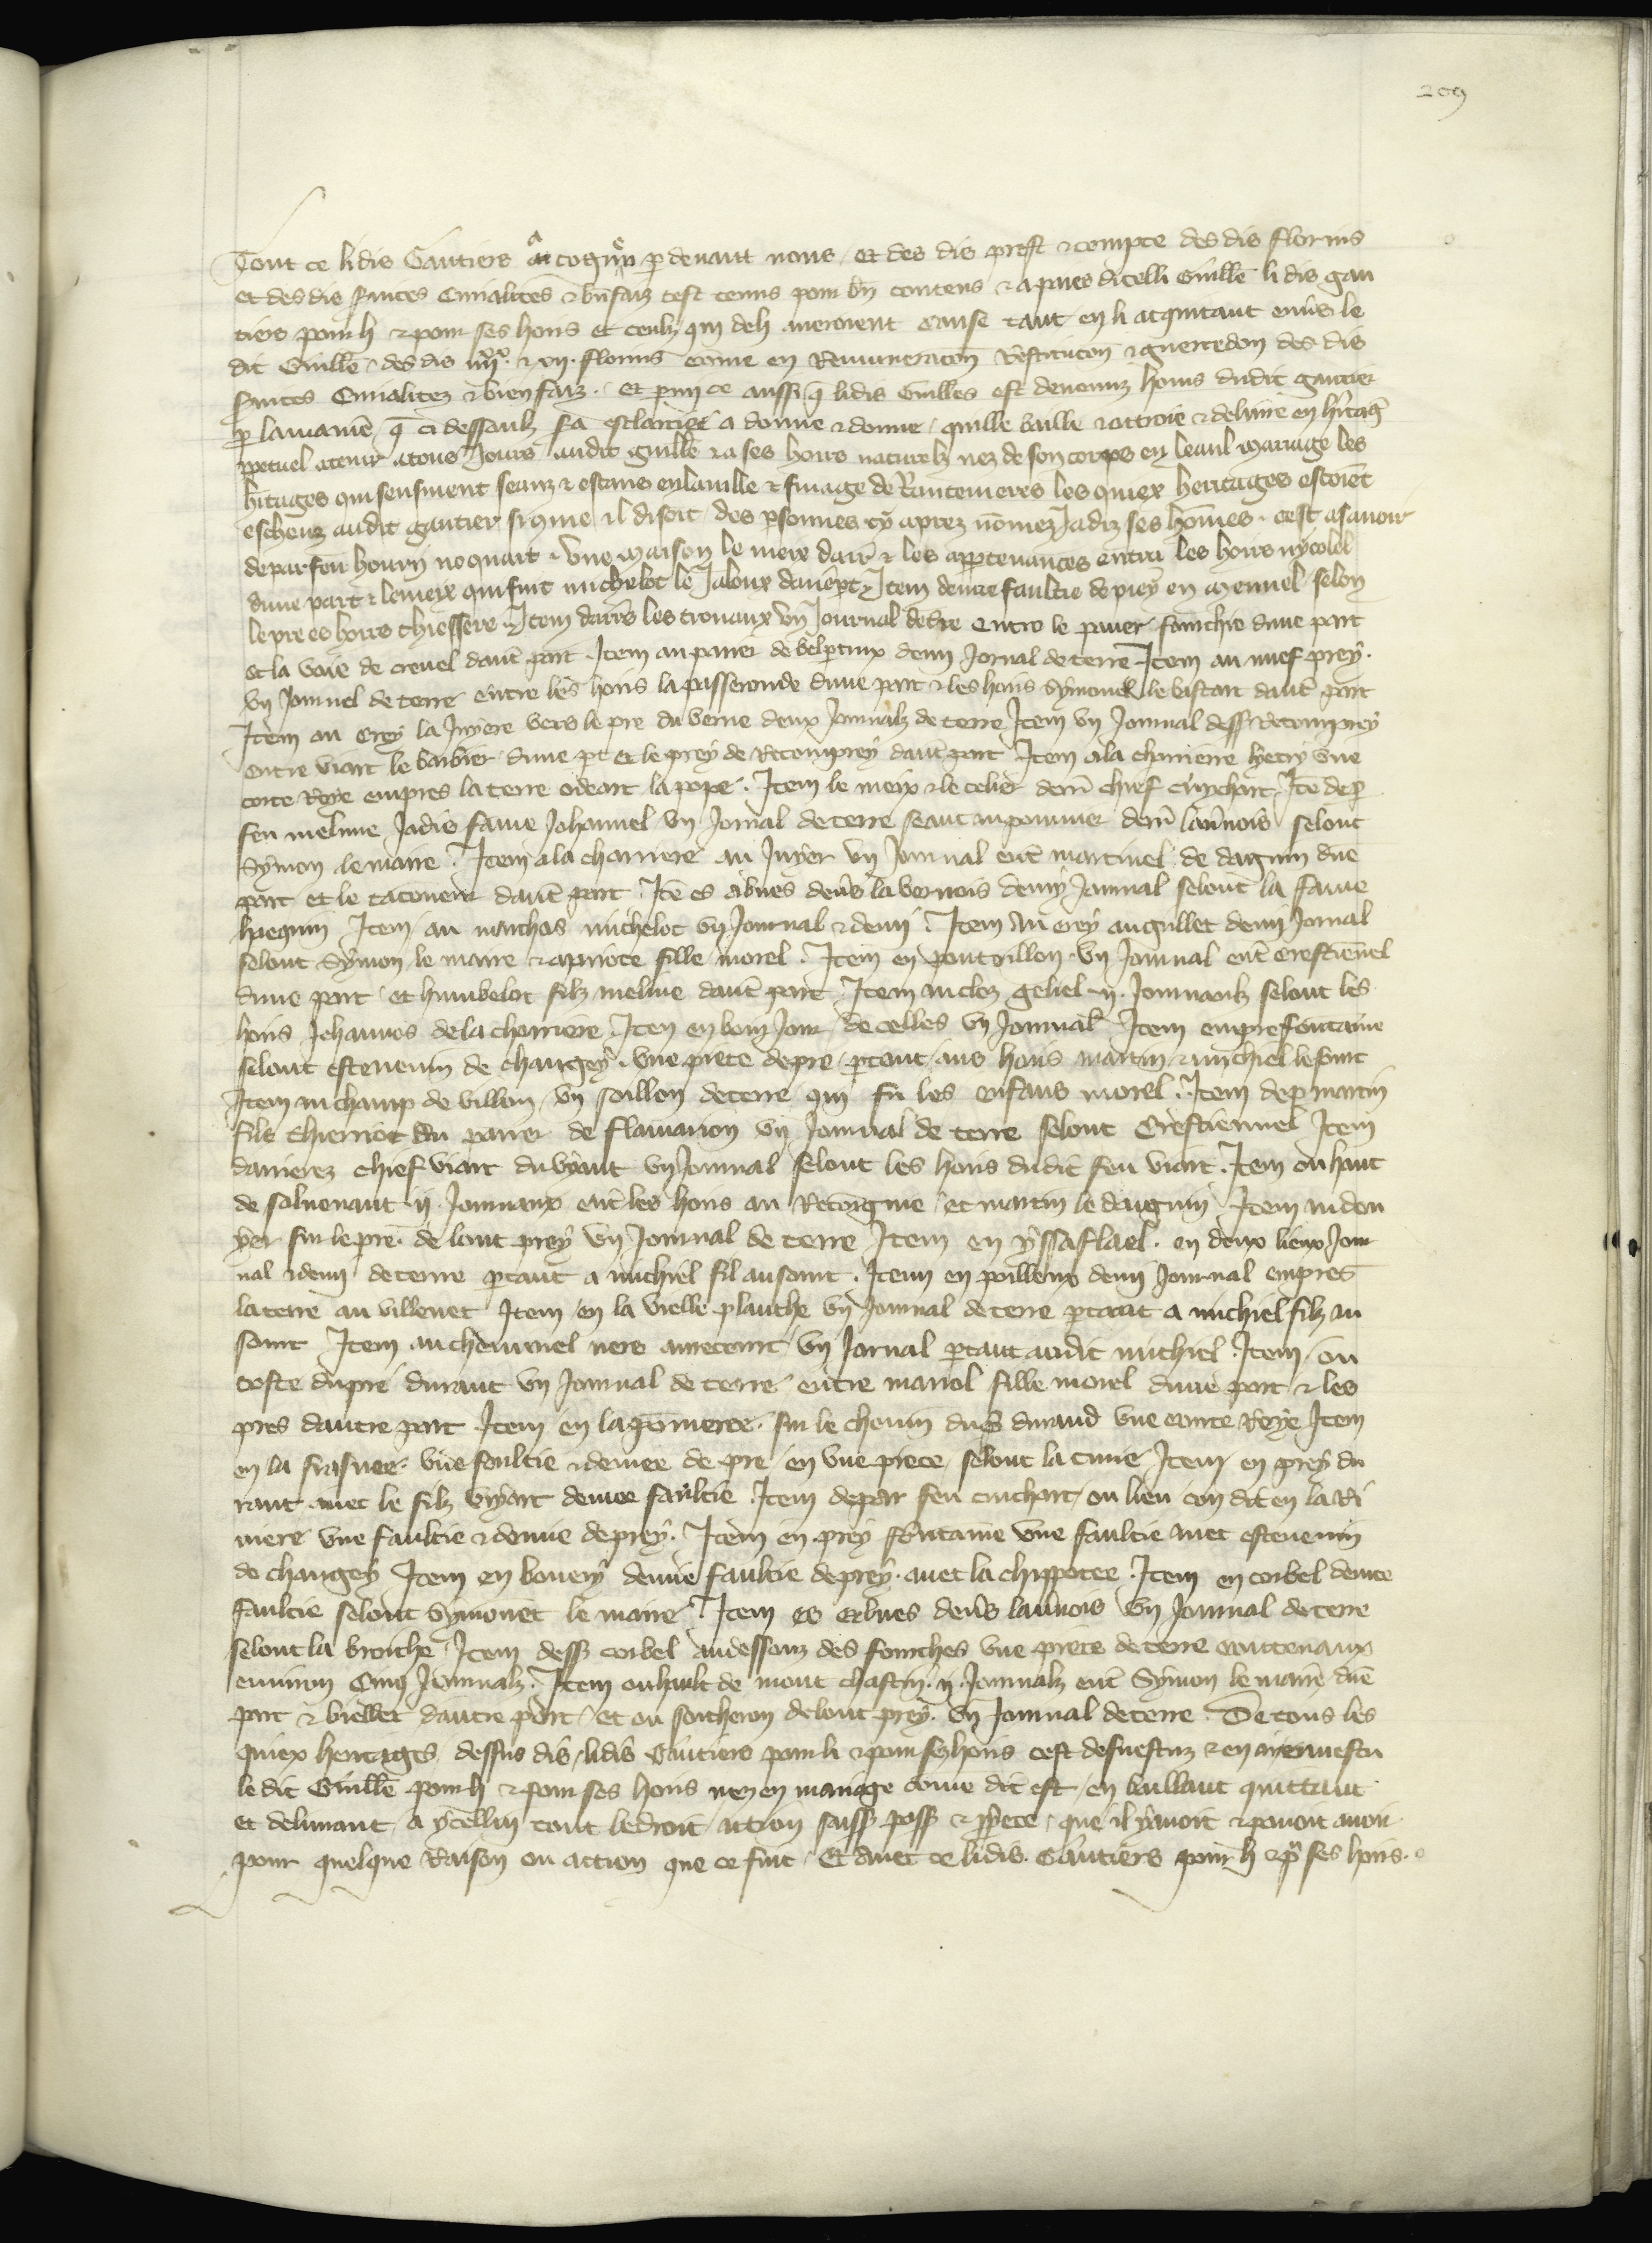 209
Tout ce lidis Gautiers a cognu p devant nous et des dis prest & compte des dis florins
et des dis finces Curialites & bnfaiz cest tenus pour bn contens & apaies dicelli Guille li dis gau
tiers pour li & pour ses hoirs et ceulx qui de li averoient cause tant en li acquitant envs le
dit Guille des dis & xij. florins come en Remuneracon Restitucon & guerredon des dis
Curialitez & bienfaiz. et pmi ce aussi q lidis Guilles est devenuz homs dudit gautier
p la manie q ci dessoubz sa esclarcie a donne & donne quitte baille & ottroie & delivre en hitage
ppetuel a tenir a tous Jours audit guille & a ses hoirs naturelz nez de son corps en leaul mariage les
hitages qui sensuient seanz & estans en la ville & finage de Rancenieres les quiex heritages estoient
escheuz audit gautier si come il disoit des psonnes cy aprez nomez Jadiz ses homes. cest asavoir
de par feu houry noquart. Une maison le meix darr & les apptenances entre les hoirs nycolel
dune part & le meix qui fuit michelot le Jaloux daut pt Item demie faultie de prey en mennel selon
le pre es hoirs thiessere Item darrs les crouaux un Journal de tre entre le paner fourchie dune part
et la voie de crevel daut part Item au paner de belptuix demi Jornal de terre Item au nuef prey.
un Journel de terre entre les hoirs la passeronde dune part & les hoirs symonel le bastart daut part
Item au Crey la Juyere vers le pre du verne deux Journalz de terre Item un Journal dess Recomprey
entre viart le barbier dune pt et le prey de Recomprey daut part Item a la charriere hery une
corte Roye empres la terre odeart la pope. Item le meix & le celier derri chief cruchart Ite de p
feu meline Jadis fame Johannel un Jornal de terre seant au pommier derr lavnois selont
Symon le maire. Item a la charriere au Juyer un Journal ent martinel de dagnin dune
part et le taconeur daut part Ite es abues devs la vernois demy Jornal selont la fame
haquin Item au marchas michelot un Journal & demi. Item au crey au gullet demi Jornal
selont Symon le maire & apriote fille morel. Item en pontoillon un Journal ent crestiennel
dune part et humbelot filz meline daut part Item au clez geliel ij. Journaulx selont les
hoirs Jehannos de la charriere Item en bon Jour de celles un Journal Item en prefontaine
selont estevenin de changey. une piece de pre ptant aus hoirs martin & michiel le sourt
Item au champ de villem un soillon de terre qui fu les enfans morel. Item de p martin
filz thierriot du paner de flamarion un Journal de terre selont Crestiennel Item
darrierez chief viart du vyaut un Journal selont les hoirs dudit feu viart. Item on haut
de salvenaut ij Journaux ent les hoirs au Recoigne et martin le dangnin Item au den
yer sur le pre de lont prey un Journal de terre Item en yssaflael. en deux lieux Jour
nal & demi de terre ptant a michiel fil au sourt. Item en poilleux demi Journal empres
la terre au villenet Item en la vielle planche un Journal de terre ptant a michiel filz au
sourt Item au cheminel nere un Jornal ptant audit michiel. Item on
coste du pre durant un Journal de terre entre mariol fille morel dune part & les
pres dautre part Item en la pomeree. sur le chemin dus durand une courte Roye Item
en la frasnee. une faultie & demee de pre en une piece selont la cure Item en prey du
rant avec le filz viart demee faultie. Item de par feu cruchart on lieu con dit en la Ri
viere une faultie & demie de prey. Item en prey fontaine une faultie avec estevenin
de changey Item en bouery demie faultie de prey. avec la chippotee. Item en corbel demee
faultie selont Symonet le maire. Item es erbues devs lavnois un Journal de terre
selont la broiche Item dess corbel au dessouz des fourches une piece de terre contenanz
environ Cinq Journalz. Item on hault de mont chastin. ij. Journalz ent Symon le maire dune
part & biellet dautre part et on sotheron de lont prey. un Journal de terre. De tous les
quiex heritages dessus dis lidis Gautiers pour li & pour sez hoirs cest desvestuz & en a revestu
le dit Guille pour li & pour ses hoirs nez en mariage come dit est en baillant quittant
et delivrant a ycellui tout le droit action saiss poss & ppiete que il y avoit & povoit avoir
pour quelque Raison ou action que ce fuit. Et avec ce lidis Gautiers pour li & pr ses hoirs.